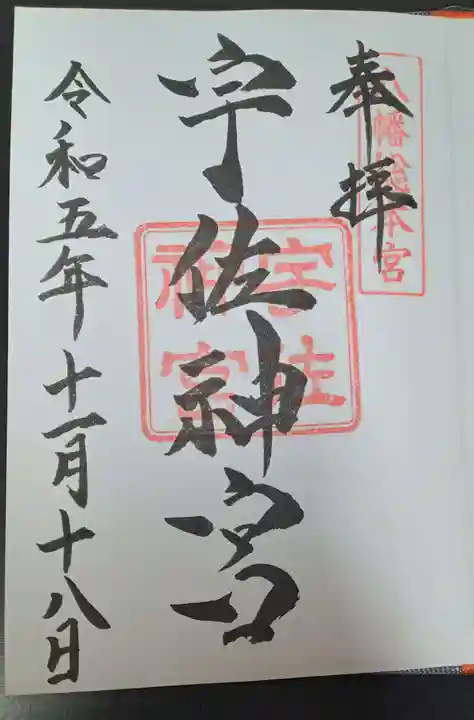 奉拝
八幡総本宮
宇佐神宮
宇佐
神宮
令和五年十一月十八日